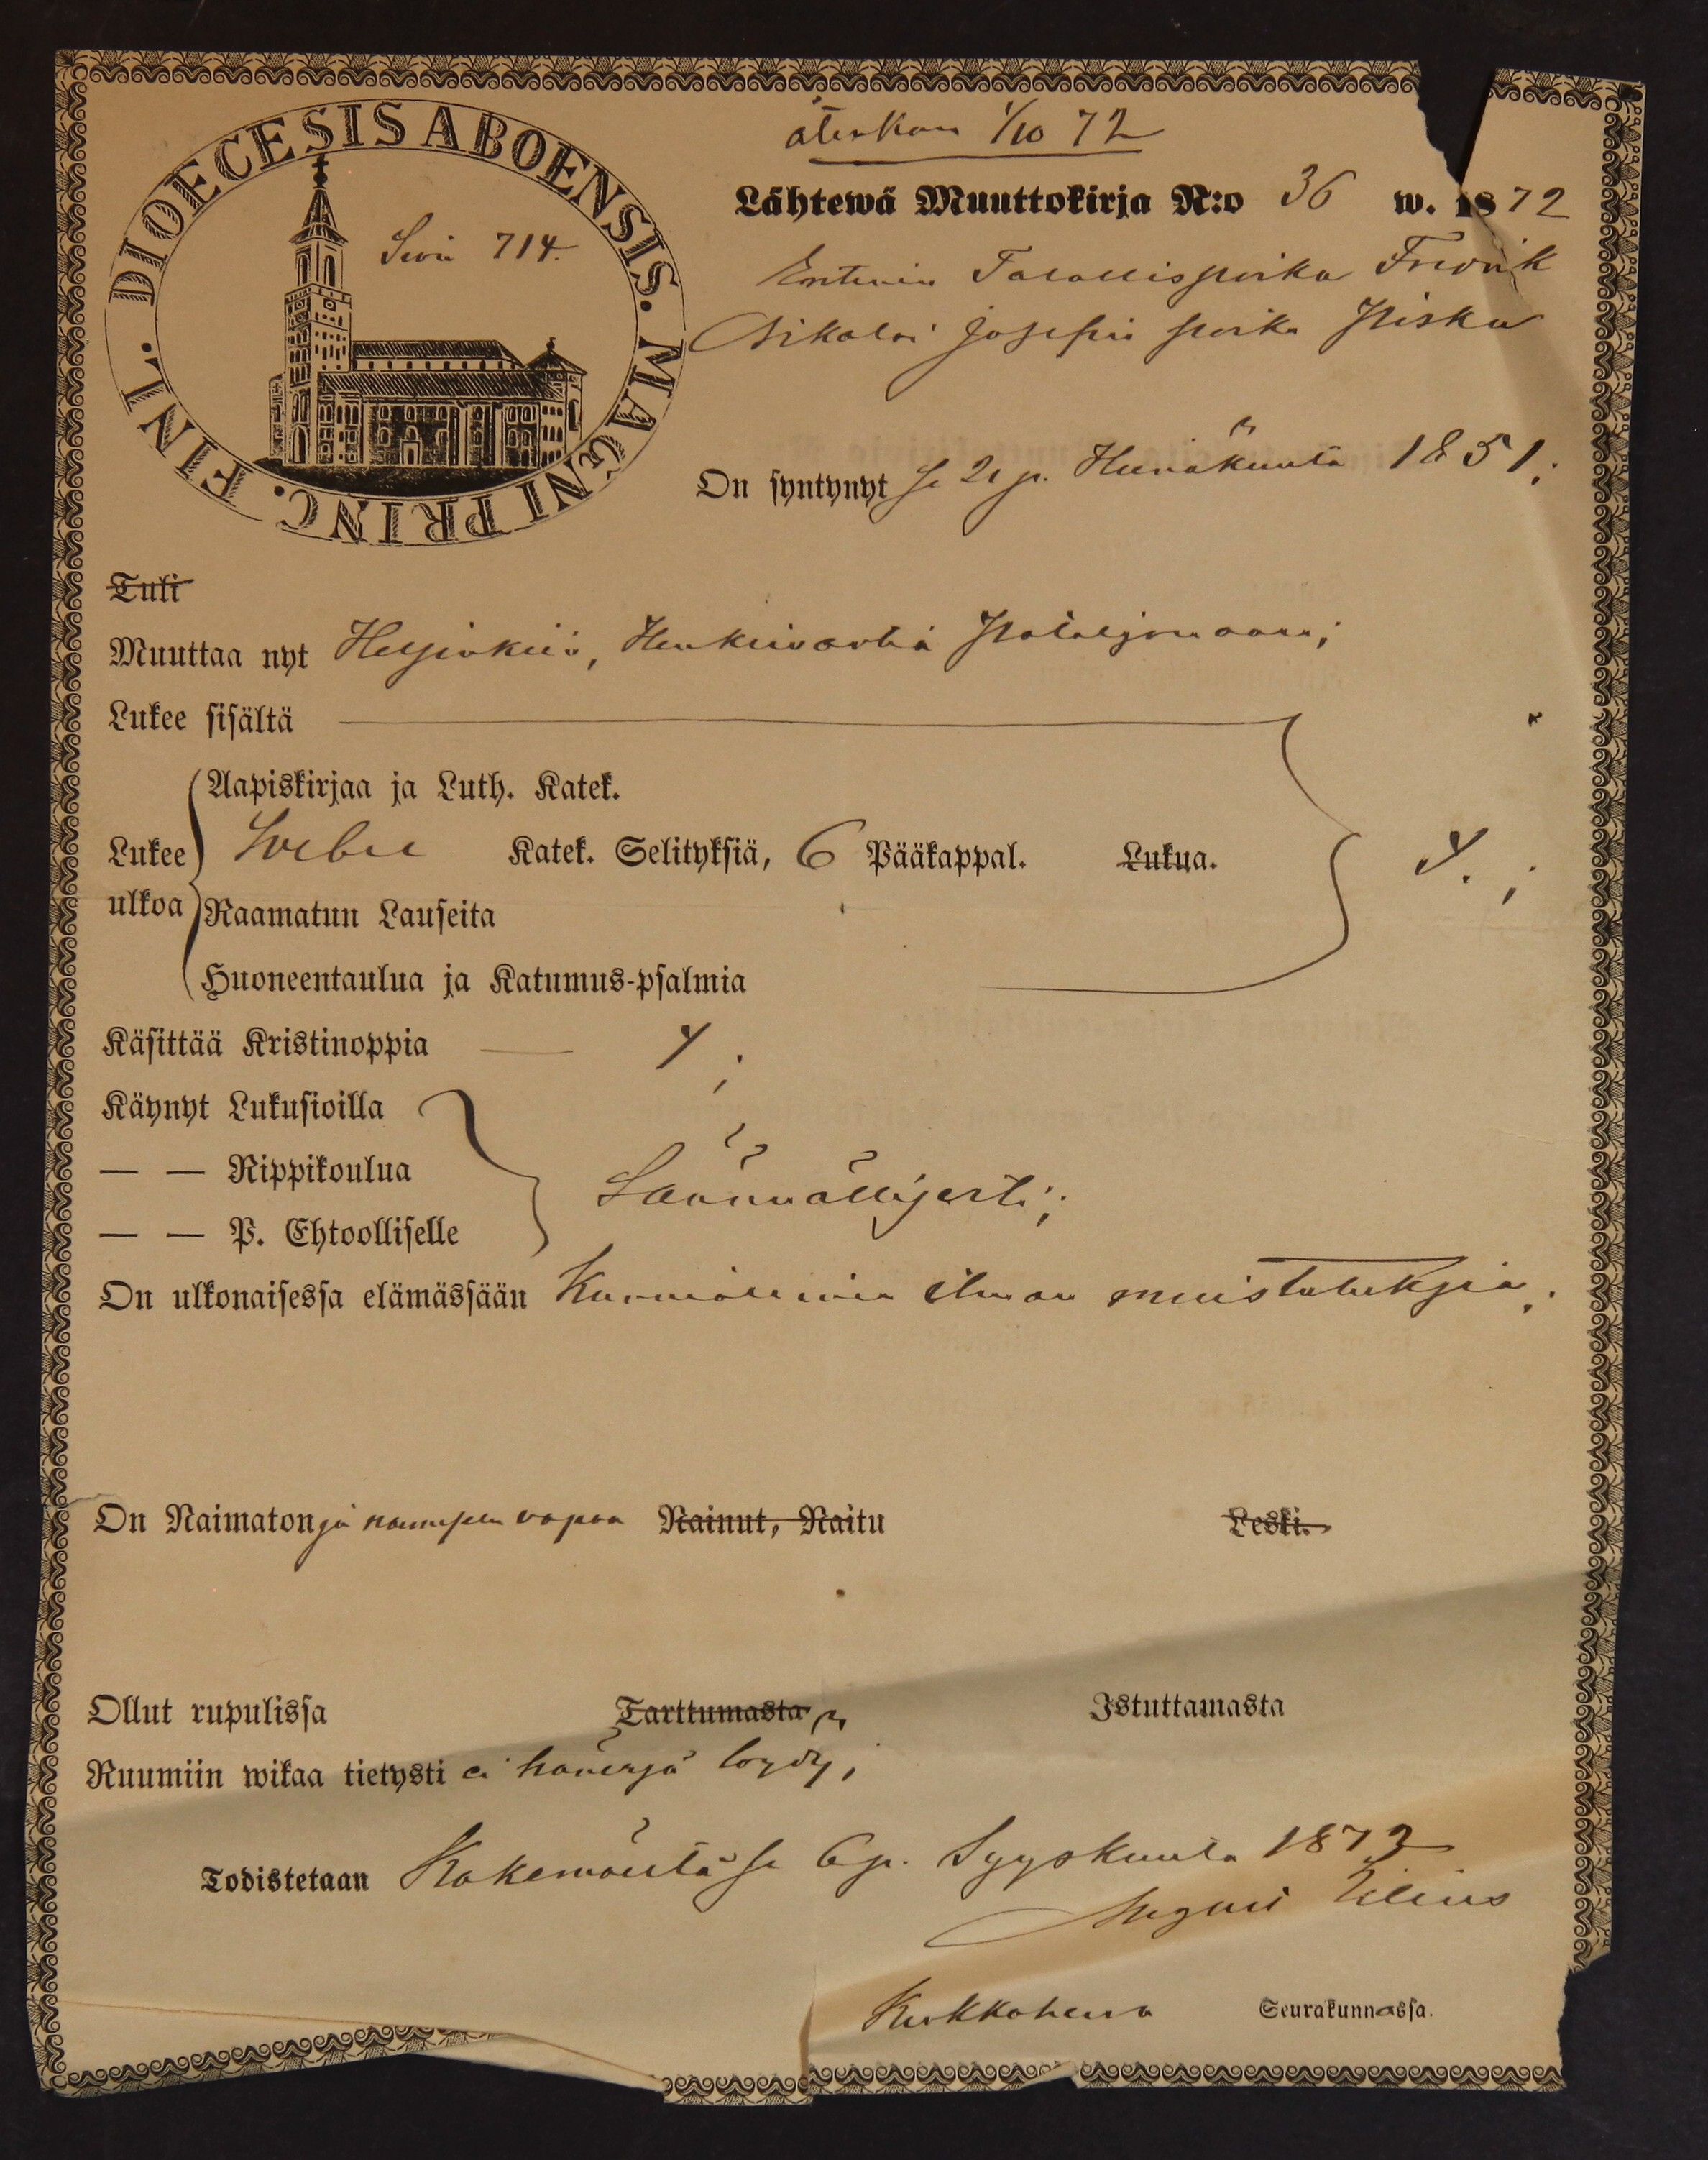 DIOECESIS ABOENSIS. MAGNI PRINC. FINL.
Sivu 714.
återkom 1/10 72
Lähtewä Muuttokirja N:o 36 w. 1872
Entinen Talollispoika Fredrik
Nikolai Josefin poika
On syntynyt se 21 p. Heinäkuuta 1851;
Tuli
Muuttaa nyt Helsinkiin, Henkivartia Pataljonaan;
Lukee sisältä
Aapiskirjaa ja Luth. Katek.
Lukee Svebel. Katek. Selityksiä, 6 Pääkappal. Lukua.
ulkoa Raamatun Lauseita
Huoneentaulua ja Katumus-psalmia
Käsittää Kristinoppia
Käynyt Lukusioilla
— — Rippikoulua
Säännöllisesti;
— — P. Ehtoolliselle
On ulkonaisessa elämässään Kunniallinen ilman muistutuksia;
On Naimaton ja naimiseen vapaa Nainut, Naitu Leski.
Ollut rupulissa Tarttumasta Istuttamasta
Ruumiin wikaa tietysti ei hänessä löydy;
Todistetaan Kokemäeltä se 6 p. Syyskuuta 1872
Kirkkoherra Seurakunnassa.